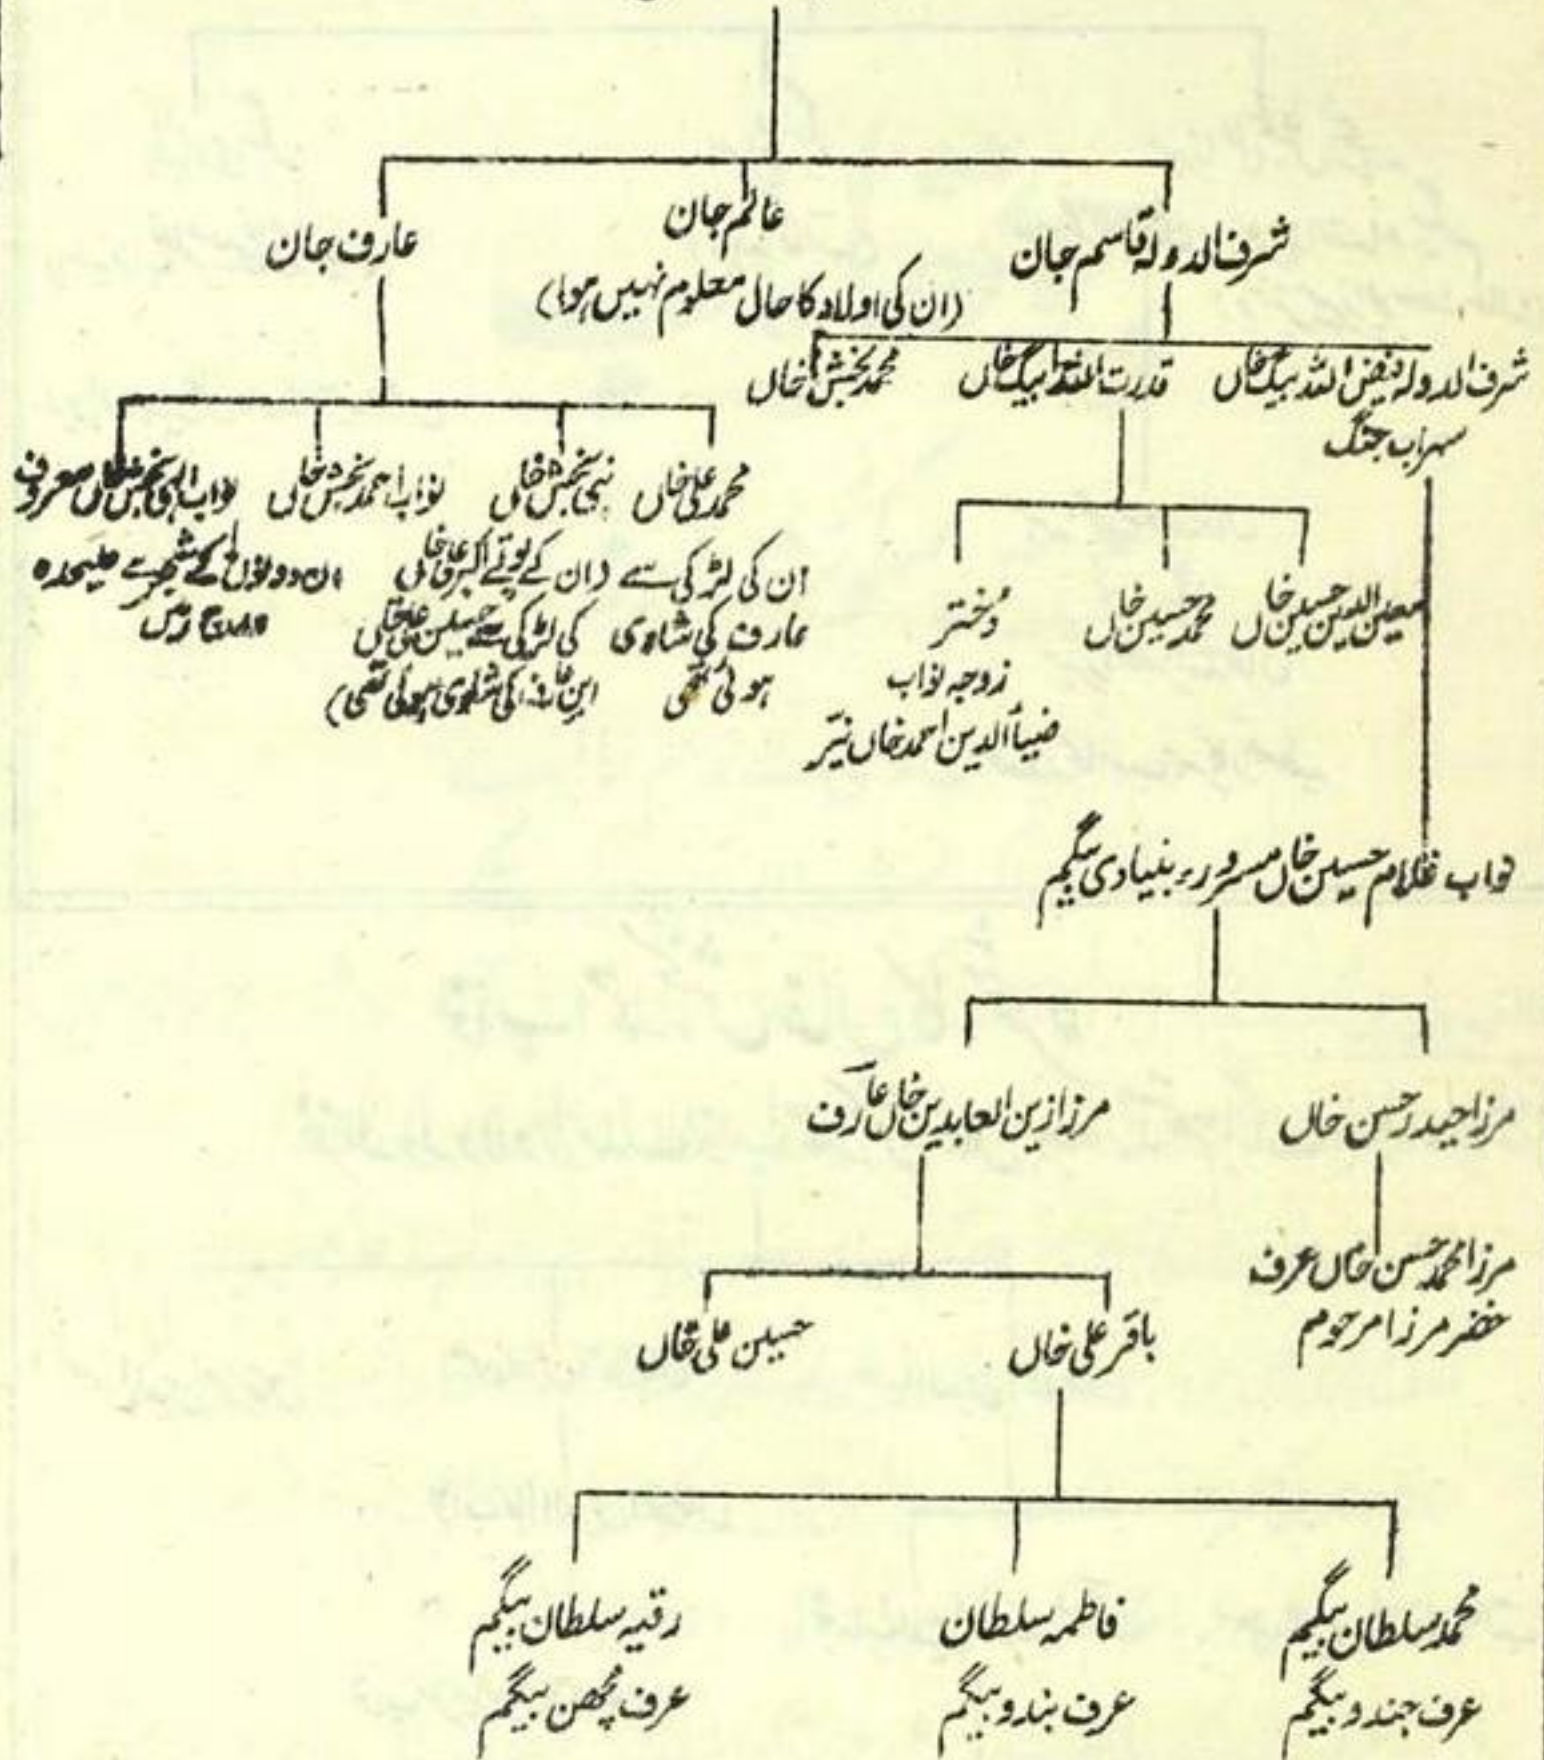 شرف الدولہ قاسم جان
عالم جان
(ان کی اولاد کا حال معلوم نہیں ہوا)
عارف جان
شرف الدولہ فیض اللہ بیگ خاں
سہراب جنگ
قدرت اللہ بیگ خاں
محمد بخش خاں
محمد علی خاں
ان کی لڑکی سے
عارف کی شادی
ہوئی تھی
نبی بخش خاں
(ان کے پوتے اکبر علی خاں
کی لڑکی سے حسین علی خاں
ابن عارف کی شادی ہوئی تھی)
نواب احمد بخش خاں
نواب الٰہی بخش خاں معروف
ان دونوں کے شجرے علیحدہ
درج ہیں
معین الدین حسین خاں
محمد حسین خاں
دختر
زوجہ نواب
ضیاءالدین احمد خاں نیّر
نواب غلام حسین خاں مسرور، بنیادی بیگم
مرزا حیدر حسن خاں
مرزا زین العابدین خاں عارف
مرزا محمد حسن خاں عرف
خضر مرزا مرحوم
باقر علی خاں
حسین علی خاں
محمد سلطان بیگم
عرف جندو بیگم
فاطمہ سلطان
عرف بندو بیگم
رقیہ سلطان بیگم
عرف پُھن بیگم